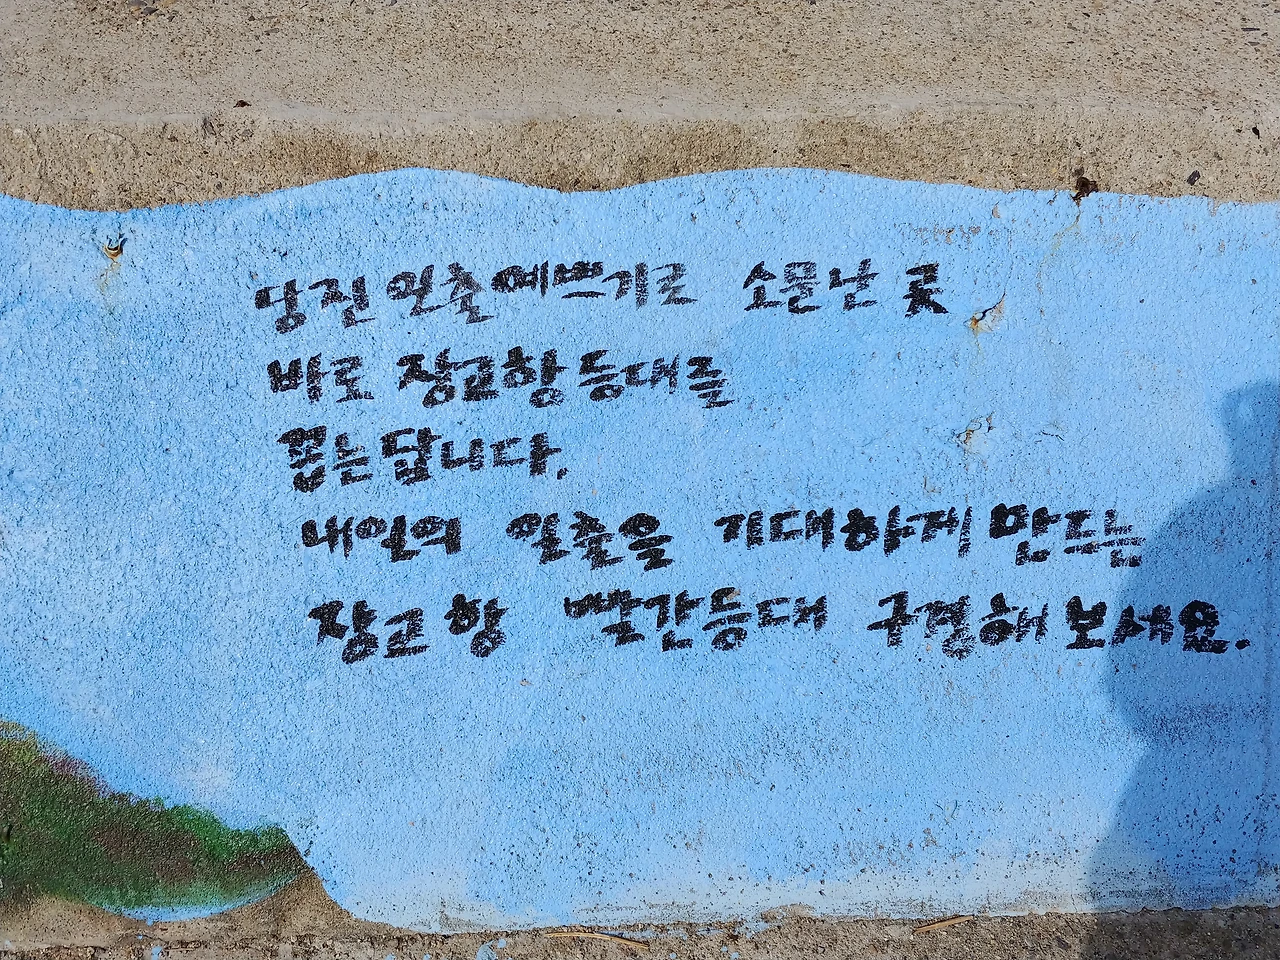 당진 일출예쁘기로 소문난 곳
바로 장고항 등대를
꼽는답니다.
내일의 일출을 기대하게 만드는
장고항 빨간등대 구경해 보세요.